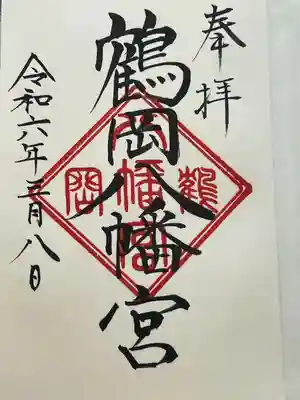 奉拝
鶴岡八幡宮
令和六年三月八日
鶴岡八幡宮